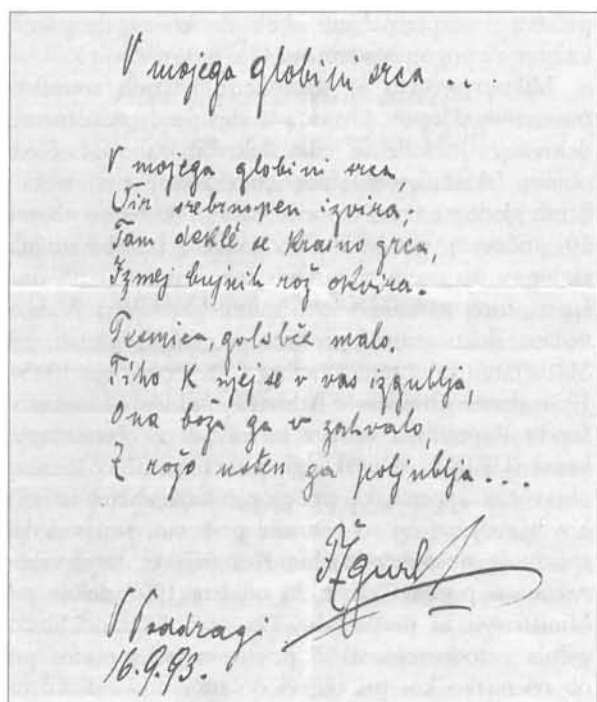 V mojega globini srca ...
V mojega globini srca,
Vir srebrnopen izvira,
Tam deklé se krasno zrca,
Izmej bujnih rož okvira.
Pesmica, golobče malo,
Tiho k njej se v vas izgublja,
Ona boža ga v zahvalo,
Z rožo usten ga poljublja...
Žgur
V Podragi
16.9.93.